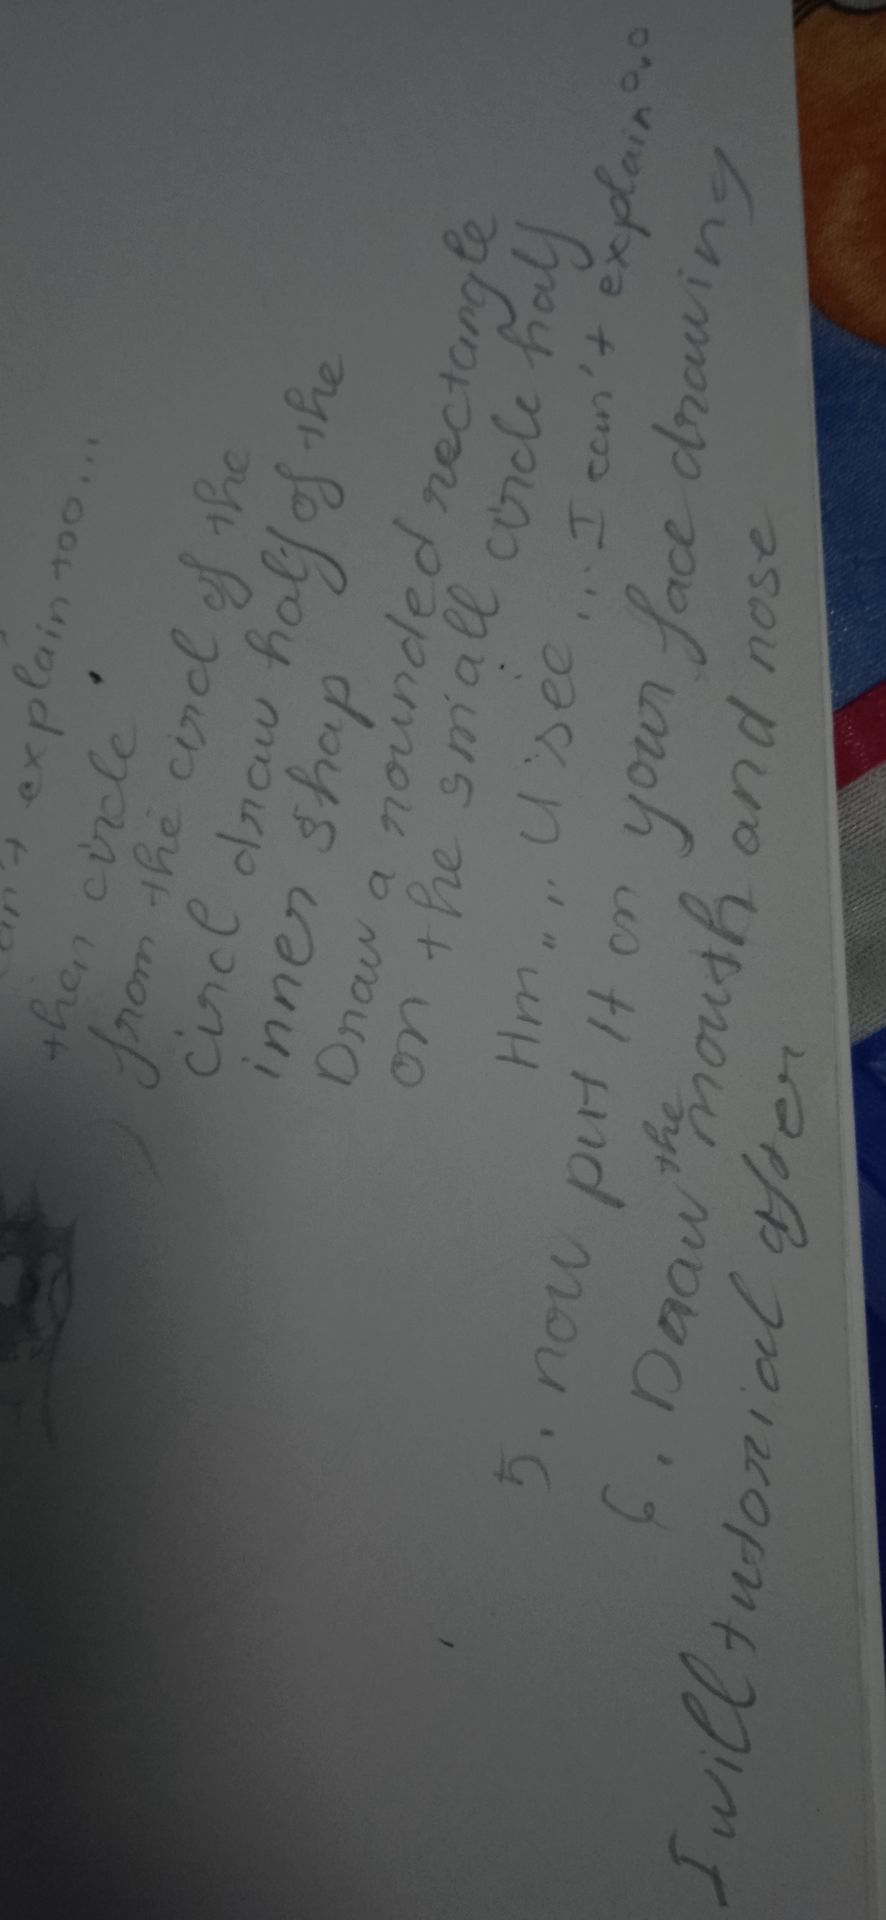 explain too...
then circle
from the circl of the
circl draw half of the
inner shap
Draw a rounded rectangle
on the small circle half
Hm... U see... I can't explain 0.0
5. now put it on your face drawing
6. Draw the mouth and nose
I will tutorial after